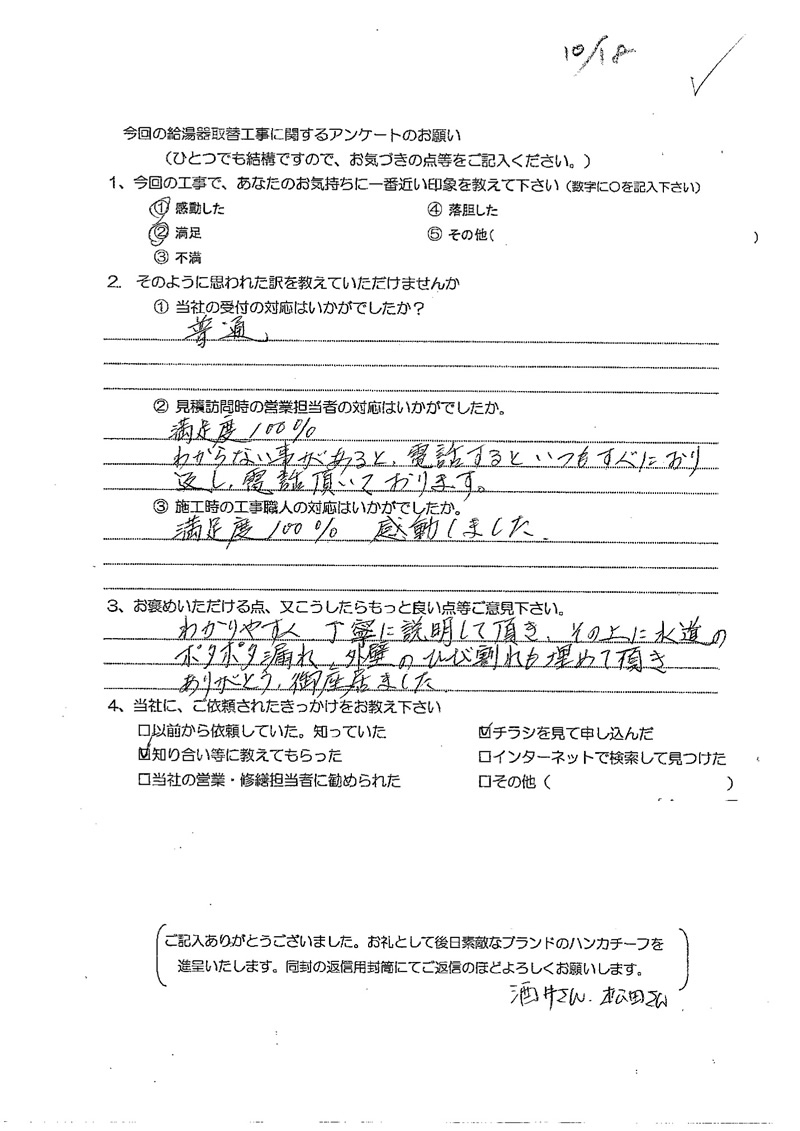 10/18
今回の給湯器取替工事に関するアンケートのお願い
(ひとつでも結構ですので、お気づきの点等をご記入ください。)
1、今回の工事で、あなたのお気持ちに一番近い印象を教えて下さい(数字に○を記入下さい)
① 感動した ④ 落胆した
② 満足 ⑤ その他( )
③ 不満
2. そのように思われた訳を教えていただけませんか
① 当社の受付の対応はいかがでしたか?
普通
② 見積訪問時の営業担当者の対応はいかがでしたか。
満足度100%
わからない事があると、電話するといつもすぐにおり
返し、電話頂いております。
③ 施工時の工事職人の対応はいかがでしたか。
満足度100% 感動しました.
3、お褒めいただける点、又こうしたらもっと良い点等ご意見下さい。
わかりやすく 丁寧に説明して頂き、その上に水道の
ポタポタ漏れ、外壁のひび割れも埋めて頂き
ありがとう、御座居ました
4、当社に、ご依頼されたきっかけをお教え下さい
□以前から依頼していた。知っていた ☑チラシを見て申し込んだ
☑知り合い等に教えてもらった □インターネットで検索して見つけた
□当社の営業・修繕担当者に勧められた □その他 ( )
ご記入ありがとうございました。お礼として後日素敵なブランドのハンカチーフを
進呈いたします。同封の返信用封筒にてご返信のほどよろしくお願いします。
酒井さん、松田さん